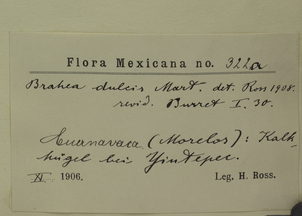 Flora Mexicana no. 322a
Brahea dulcis Mart. det. Ross 1908.
revid. Burret I. 30.
Cuanavaca (Morelos): Kalk-
hügel bei Yintepec.
XI. 1906. Leg. H. Ross.